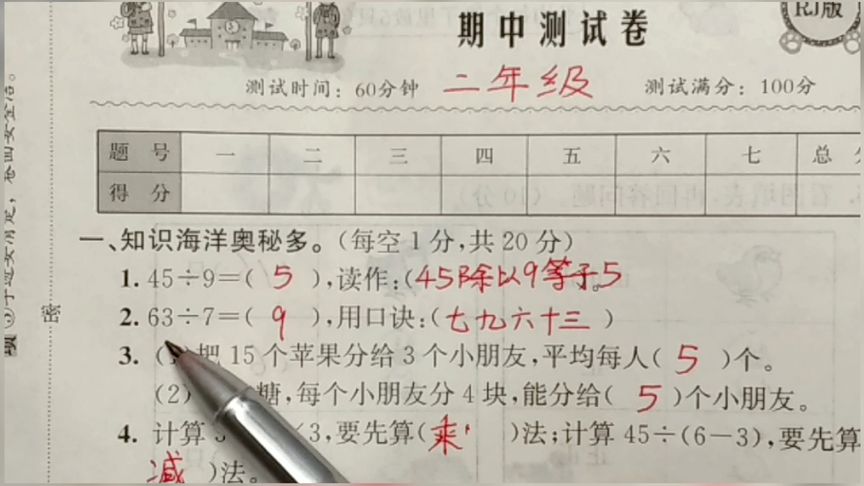 RJ版
期中测试卷
测试时间：60分钟 二年级 测试满分：100分
题 号 一 二 三 四 五 六 七 总
得 分
一、知识海洋奥秘多。（每空1分，共20分）
1. 45÷9=( 5 )，读作：(45除以9等于5。
2. 63÷7=( 9 )，用口诀：(七九六十三)
3. (1)把15个苹果分给3个小朋友，平均每人( 5 )个。
(2) 糖，每个小朋友分4块，能分给( 5 )个小朋友。
4. 计算 3，要先算(乘)法；计算45÷(6－3)，要先算
减)法。
密